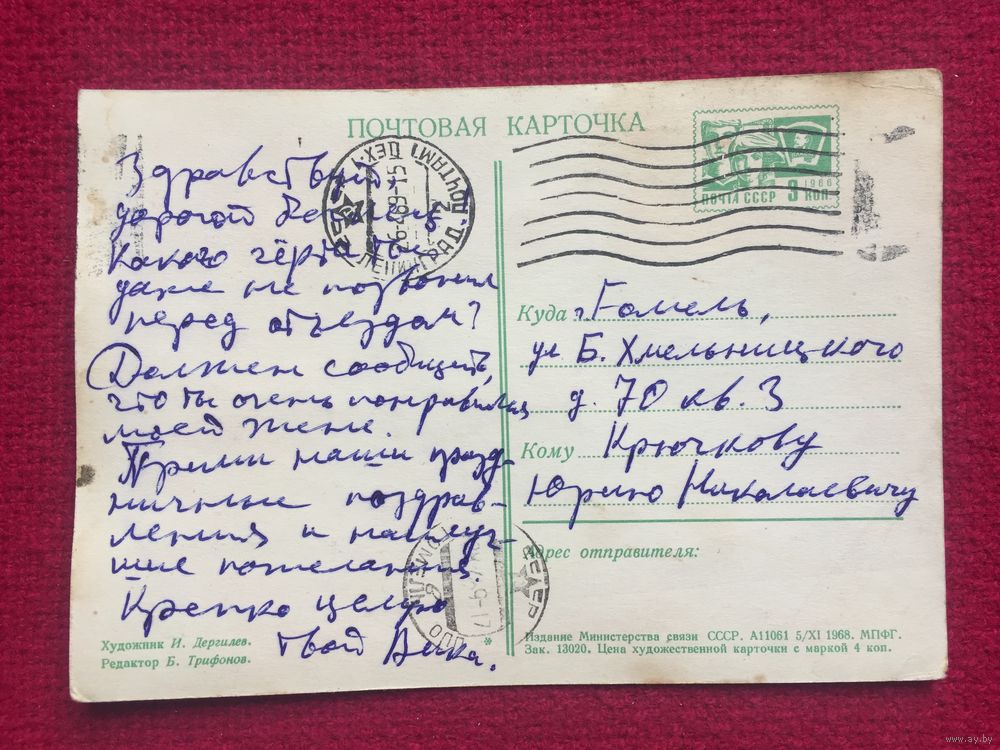 ПОЧТОВАЯ КАРТОЧКА
ПОЧТА СССР 3 КОП.
1966
ЛЕНИНГРАД ПОЧТАМТ ЦЕХ
26-4-69-15
Здравствуй,
дорогой
Какого чёрта ты
даже не позвонил
перед отъездом?
Должен сообщить,
что ты очень понравился
моей жене.
Прими наши празд-
ничные поздрав-
ления и наилуч-
шие пожелания.
Крепко целую
твой
Куда г. Гомель,
ул Б. Хмельницкого
д. 70 кв. 3
Кому Крючкову
Юрию Николаевичу
Адрес отправителя:
ГОМЕЛЬ
Художник И. Дергилев.
Редактор Б. Трифонов.
Издание Министерства связи СССР. А11061 5/XI 1968. МПФГ.
Зак. 13020. Цена художественной карточки с маркой 4 коп.
www.ay.by